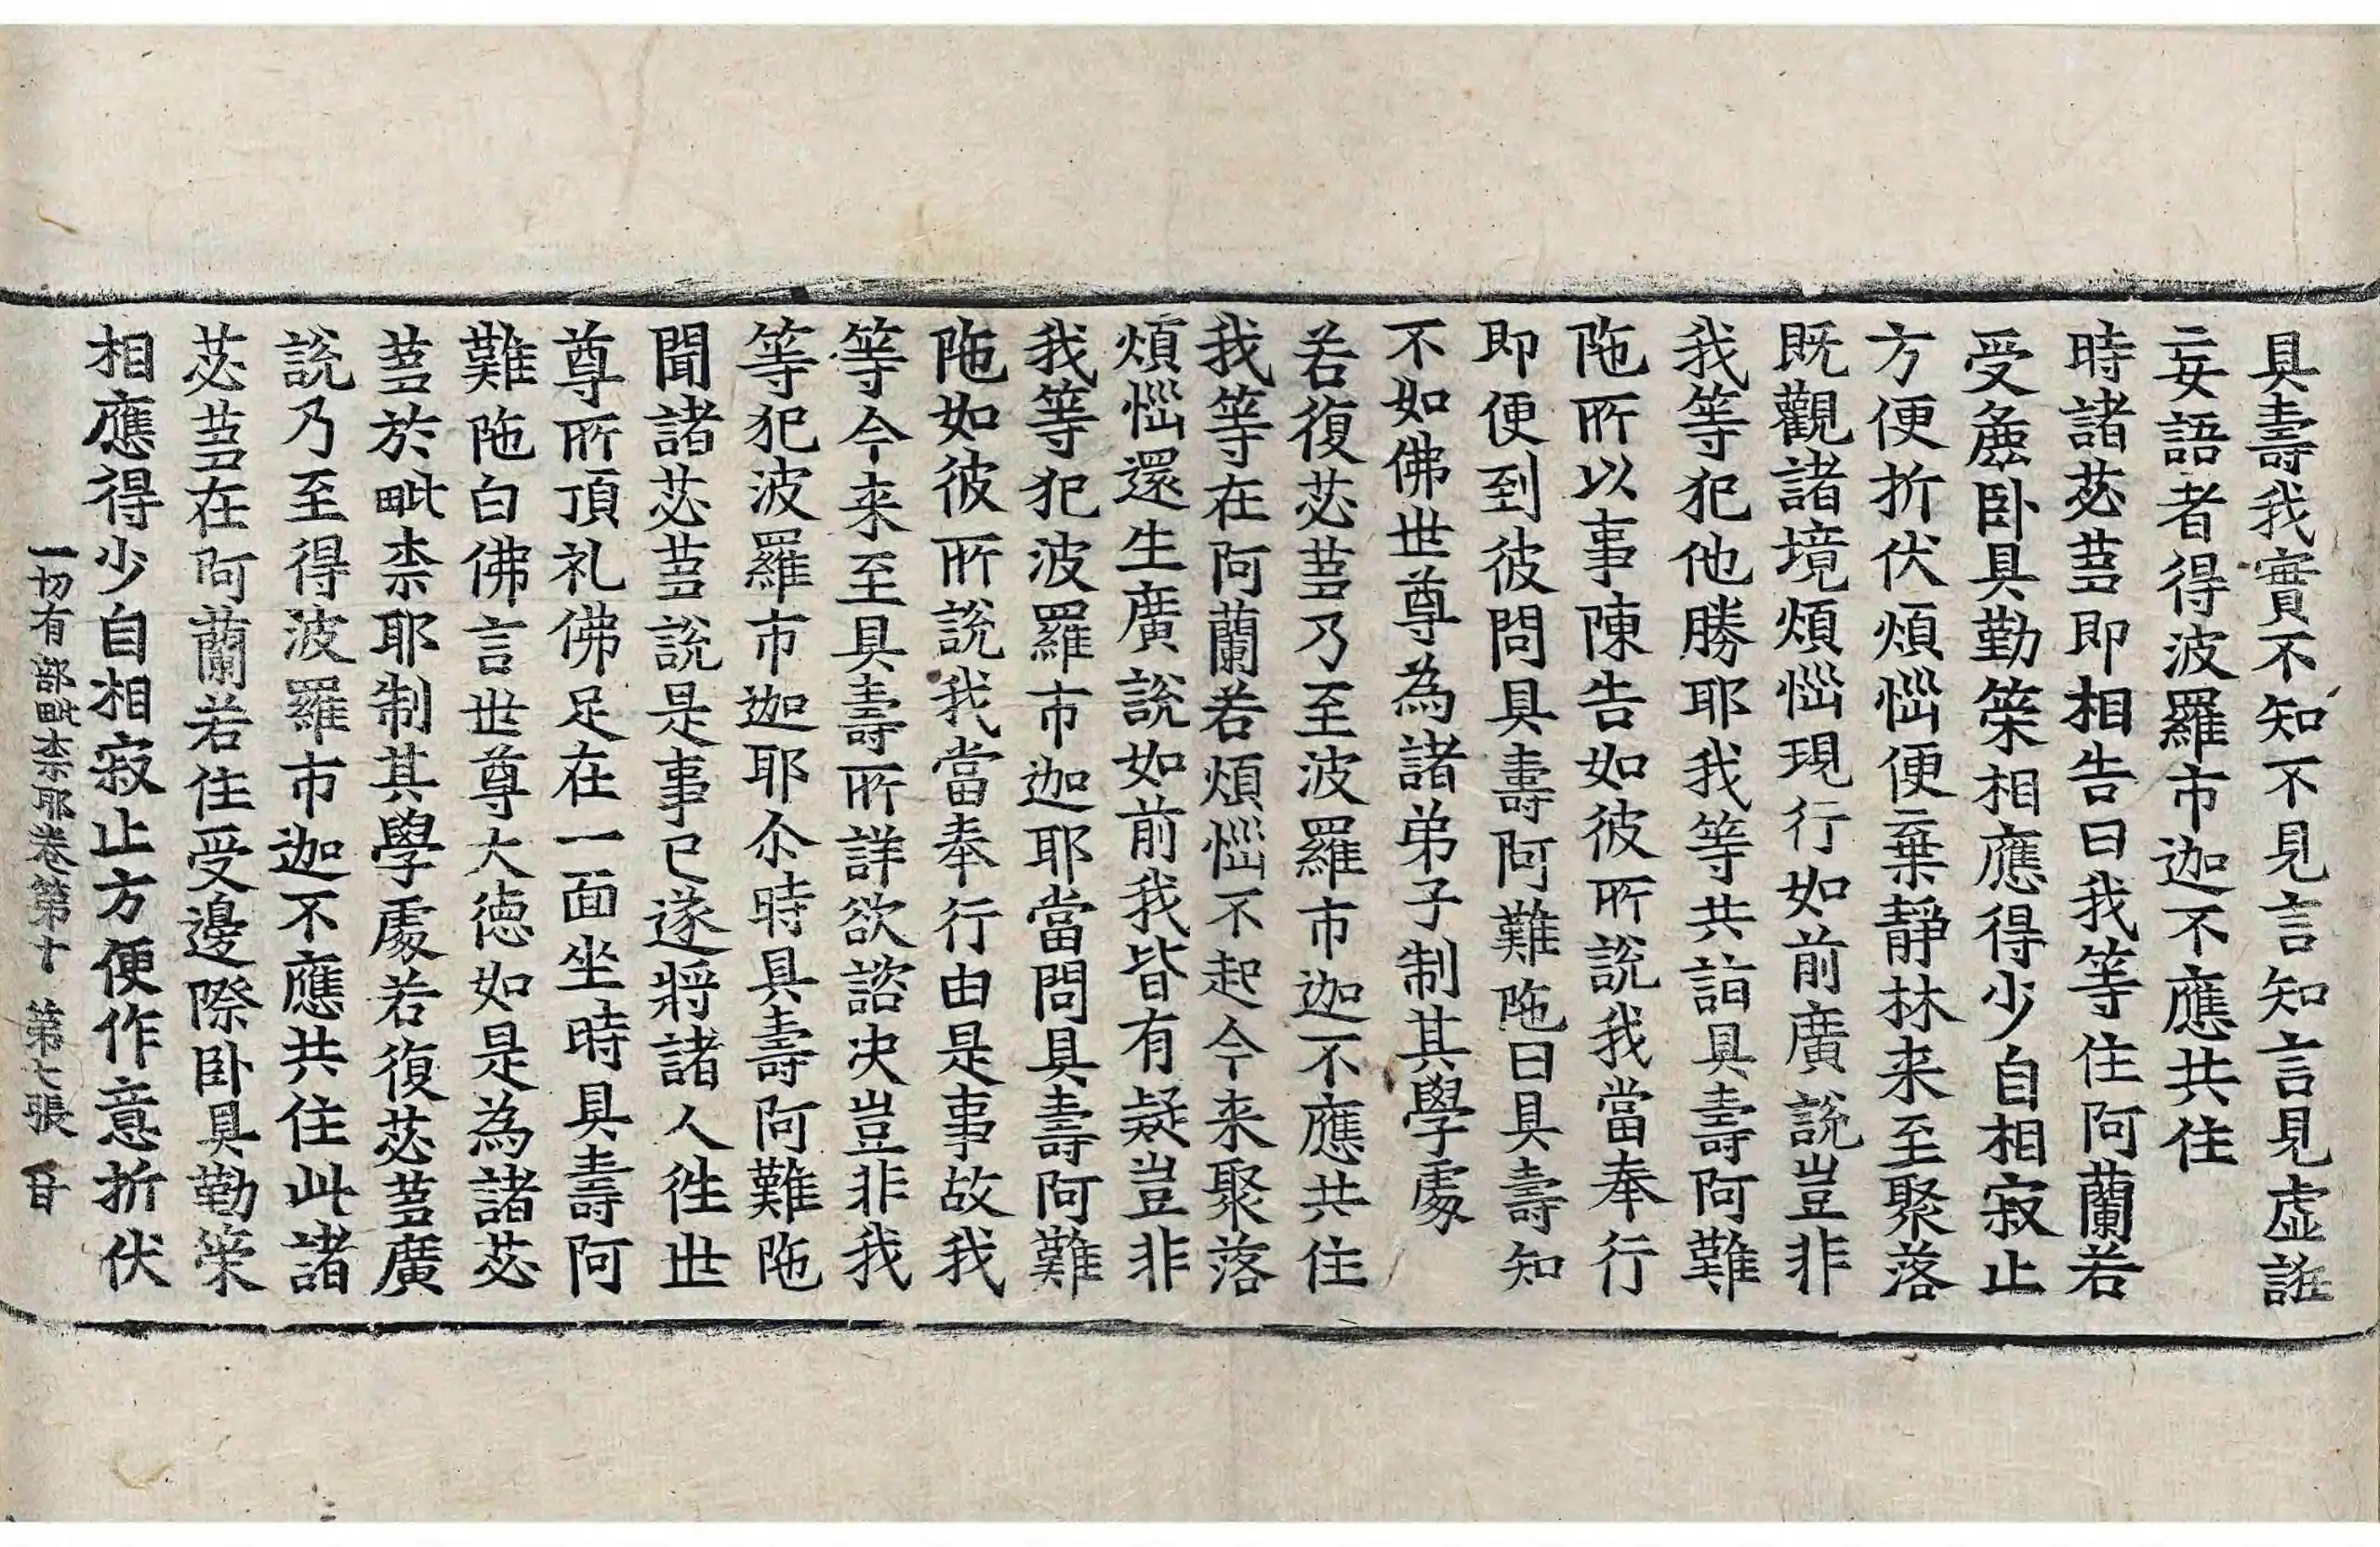 具壽我實不知不見言知言見虛誑
妄語者得波羅市迦不應共住
時諸苾蒭即相告曰我等住阿蘭若
受麁卧具勤策相應得少自相寂止
方便折伏煩惱便棄靜林来至聚落
既觀諸境煩惱現行如前廣說豈非
我等犯他勝耶我等共詣具壽阿難
陁所以事陳告如彼所說我當奉行
即便到彼問具壽阿難陁曰具壽知
不如佛世尊為諸弟子制其學處
若復苾蒭乃至波羅市迦不應共住
我等在阿蘭若煩惱不起今来聚落
煩惱還生廣說如前我皆有疑豈非
我等犯波羅市迦耶當問具壽阿難
陁如彼所說我當奉行由是事故我
等今来至具壽所詳欲諮决豈非我
等犯波羅市迦耶尒時具壽阿難陁
聞諸苾蒭說是事已遂將諸人徃世
尊所頂礼佛足在一面坐時具壽阿
難陁白佛言世尊大德如是為諸苾
蒭於毗柰耶制其學處若復苾蒭廣
說乃至得波羅市迦不應共住此諸
苾蒭在阿蘭若住受邊際卧具勤策
相應得少自相寂止方便作意折伏
一切有部毗柰耶卷第十 第七張 甘